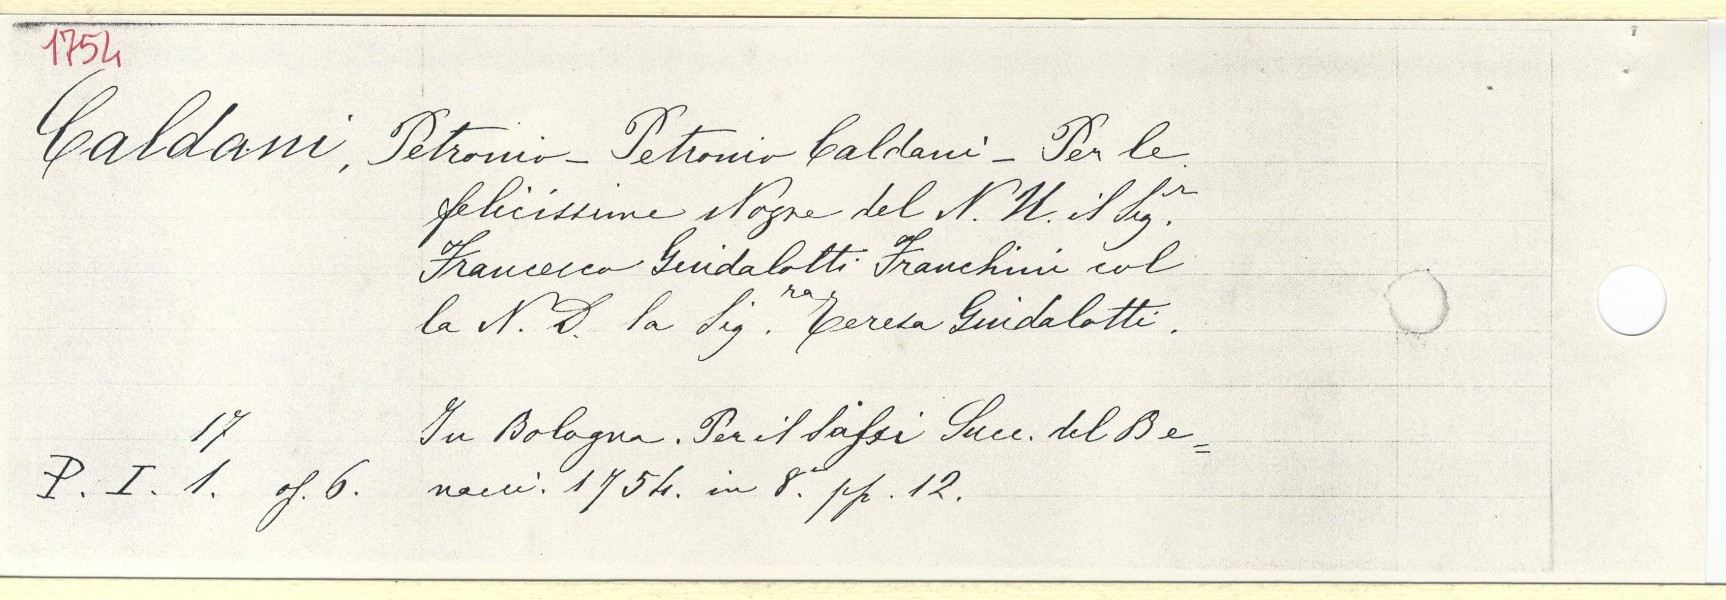 1754
Caldani, Petronio - Petronio Caldani - Per le
felicissime Nozze del N. U. il Sig.r
Francesco Guidalotti Franchini col
la N. D. la Sig.ra Teresa Guidalotti.
17 In Bologna. Per il Sassi Succ. del Be=
P. I. 1. of. 6. nacci. 1754. in 8.° pp. 12.